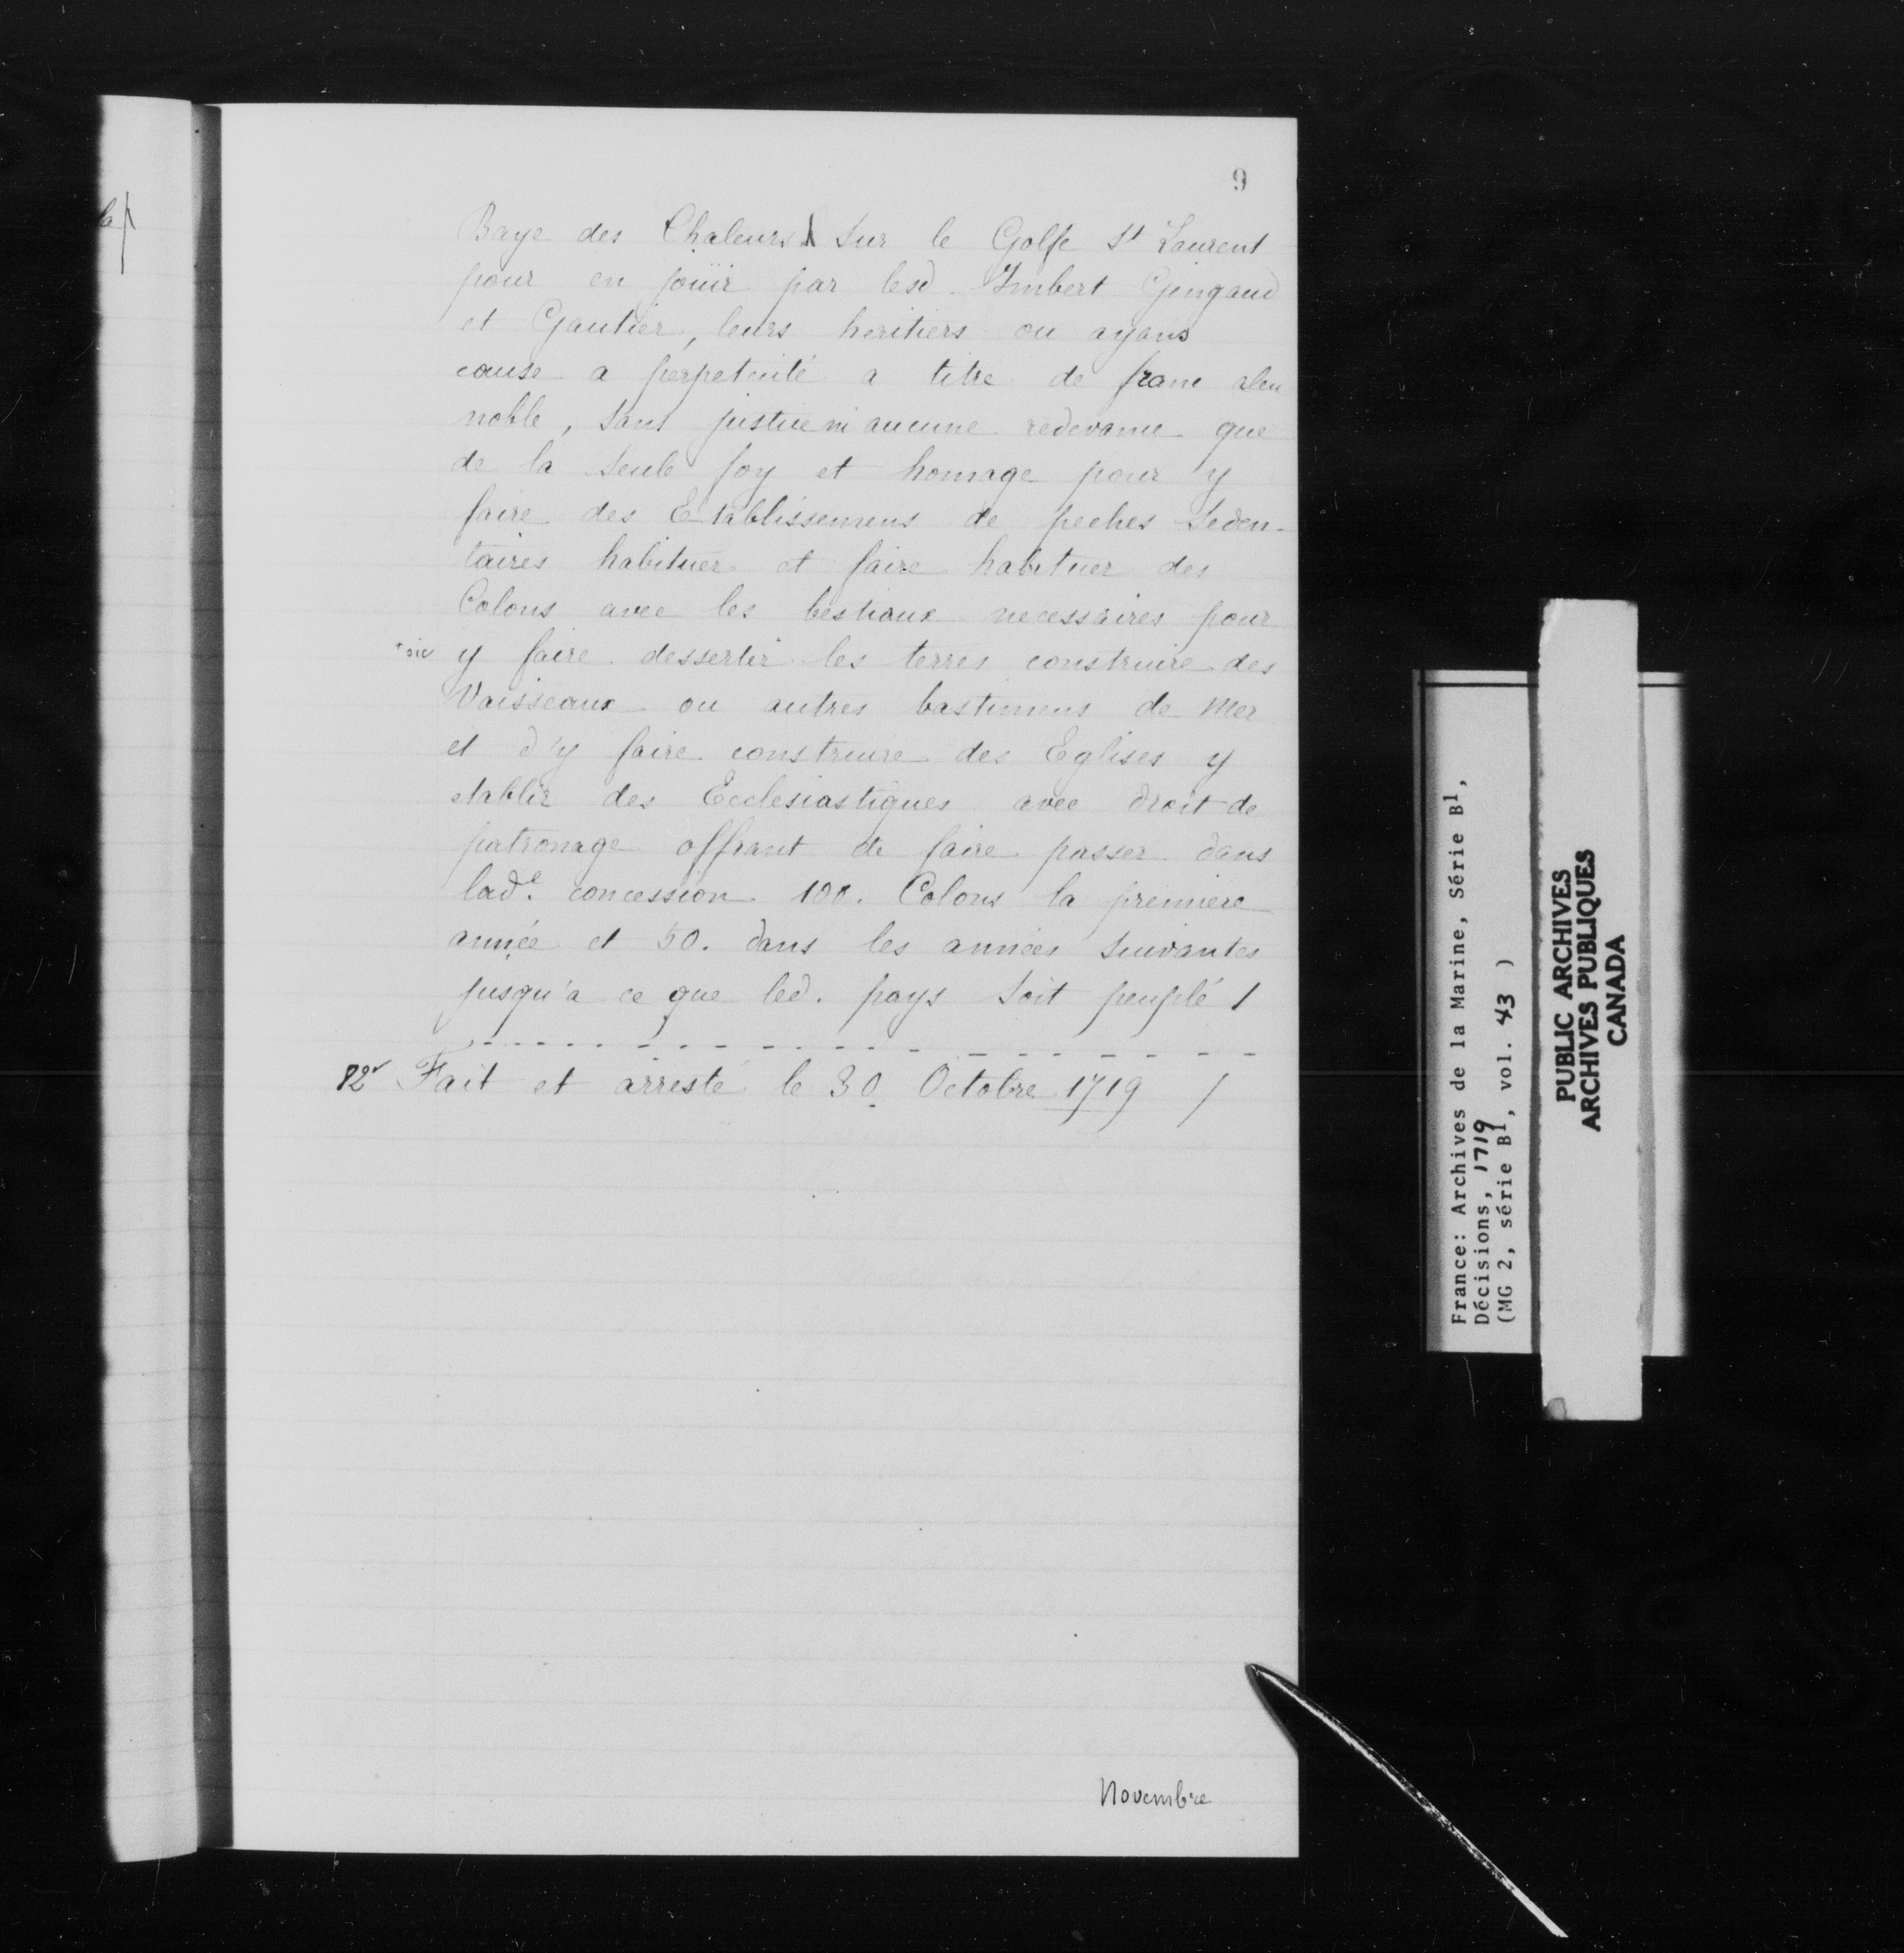 9
Baye des Chaleurs sur le Golfe St Laurent
pour en joüir par lesd. Imbert Gingaud
et Gautier, leurs heritiers ou ayans
cause a perpetuité a titre de franc aleu
noble, sans justice ni aucune redevance que
de la seule foy et homage pour y
faire des Etablissemens de peches seden-
taires habituer et faire habituer des
Colons avec les bestiaux necessaires pour
+sic y faire desserter les terres construire des
Vaisseaux ou autres bastimens de Mer
et d'y faire construire des Eglises y
etablir des Ecclesiastiques avec droit de
patronage offrant de faire passer dans
lade. concession 100. Colons la premiere
année et 50. dans les années suivantes
jusqu'a ce que led. pays soit peuplé /
Fait et arresté le 30. Octobre 1719 /
Novembre
France: Archives de la Marine, Série B1,
Décisions, 1719
(MG 2, série B1, vol. 43 )
PUBLIC ARCHIVES
ARCHIVES PUBLIQUES
CANADA